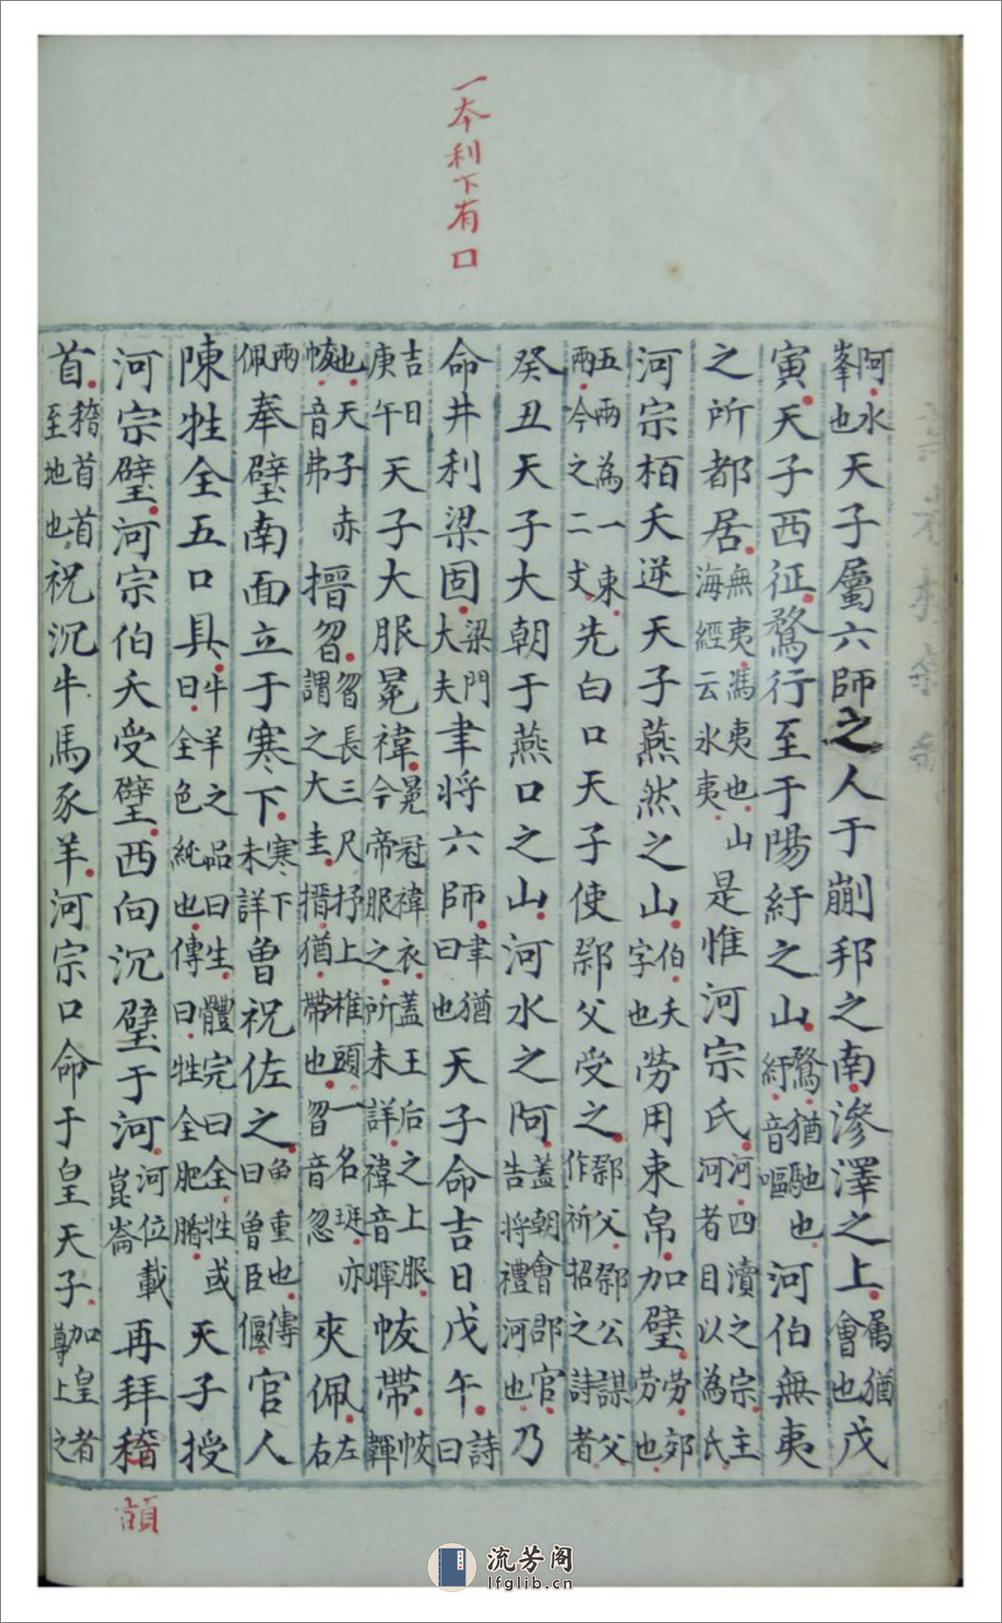 一本利下有口
阿水峯也天子屬六師之人于𧷽邦之南滲澤之上屬猶會也戊
寅天子西征鶩行至于陽紆之山鶩猶馳也紆音嘔河伯無夷
之所都居無夷馮夷也山海經云冰夷是惟河宗氏河四瀆之宗主河者因以為氏
河宗栢夭逆天子燕然之山伯夭字也勞用束帛加璧勞郊勞也
五兩為一束兩今之二丈先白口天子使鄒父受之鄒父鄒公謀父作祈招之詩者
癸丑天子大朝于燕口之山河水之阿蓋朝會郡官告將禮河也乃
命井利梁固梁門大夫聿將六師聿猶曰也天子命吉日戊午詩曰
吉日庚午天子大服冕禕冕冠禕衣蓋王后之上服今帝服之所未詳禕音暉帗帶帗韠
也天子赤帗音弗搢曶曶長三尺抒上椎頭一名珽亦謂之大圭搢猶帶也曶音忽夾佩左右
兩佩奉璧南面立于寒下寒下未詳曾祝佐之曾重也傳曰曾臣偃官人
陳牲全五口具牛羊之品曰生體完曰全牲或曰全色純也傳曰牲全肥腯天子授
河宗璧河宗伯夭受璧西向沉璧于河河位載崑崙再拜稽
首稽首首至地也祝沉牛馬豕羊河宗口命于皇天子加皇者尊上之
䭫
流芳阁
lfglib.cn